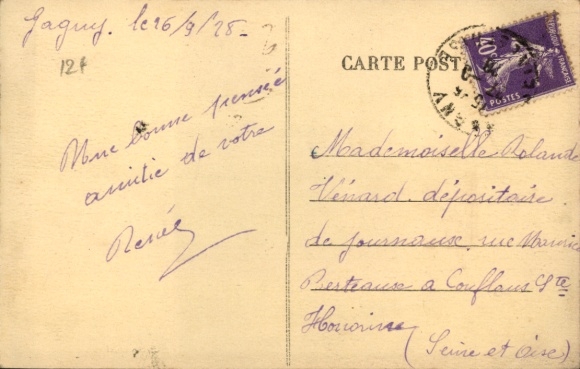 Gagny. le 26/9/28-
12f
CARTE POST
Une bonne pensée
amitié de votre
Renée
40c
POSTES
Mademoiselle Rolande
Vénard. dépositaire
de journaux. rue Maurice
Berteaux a Conflans Ste
Honorine
(Seine et Oise)